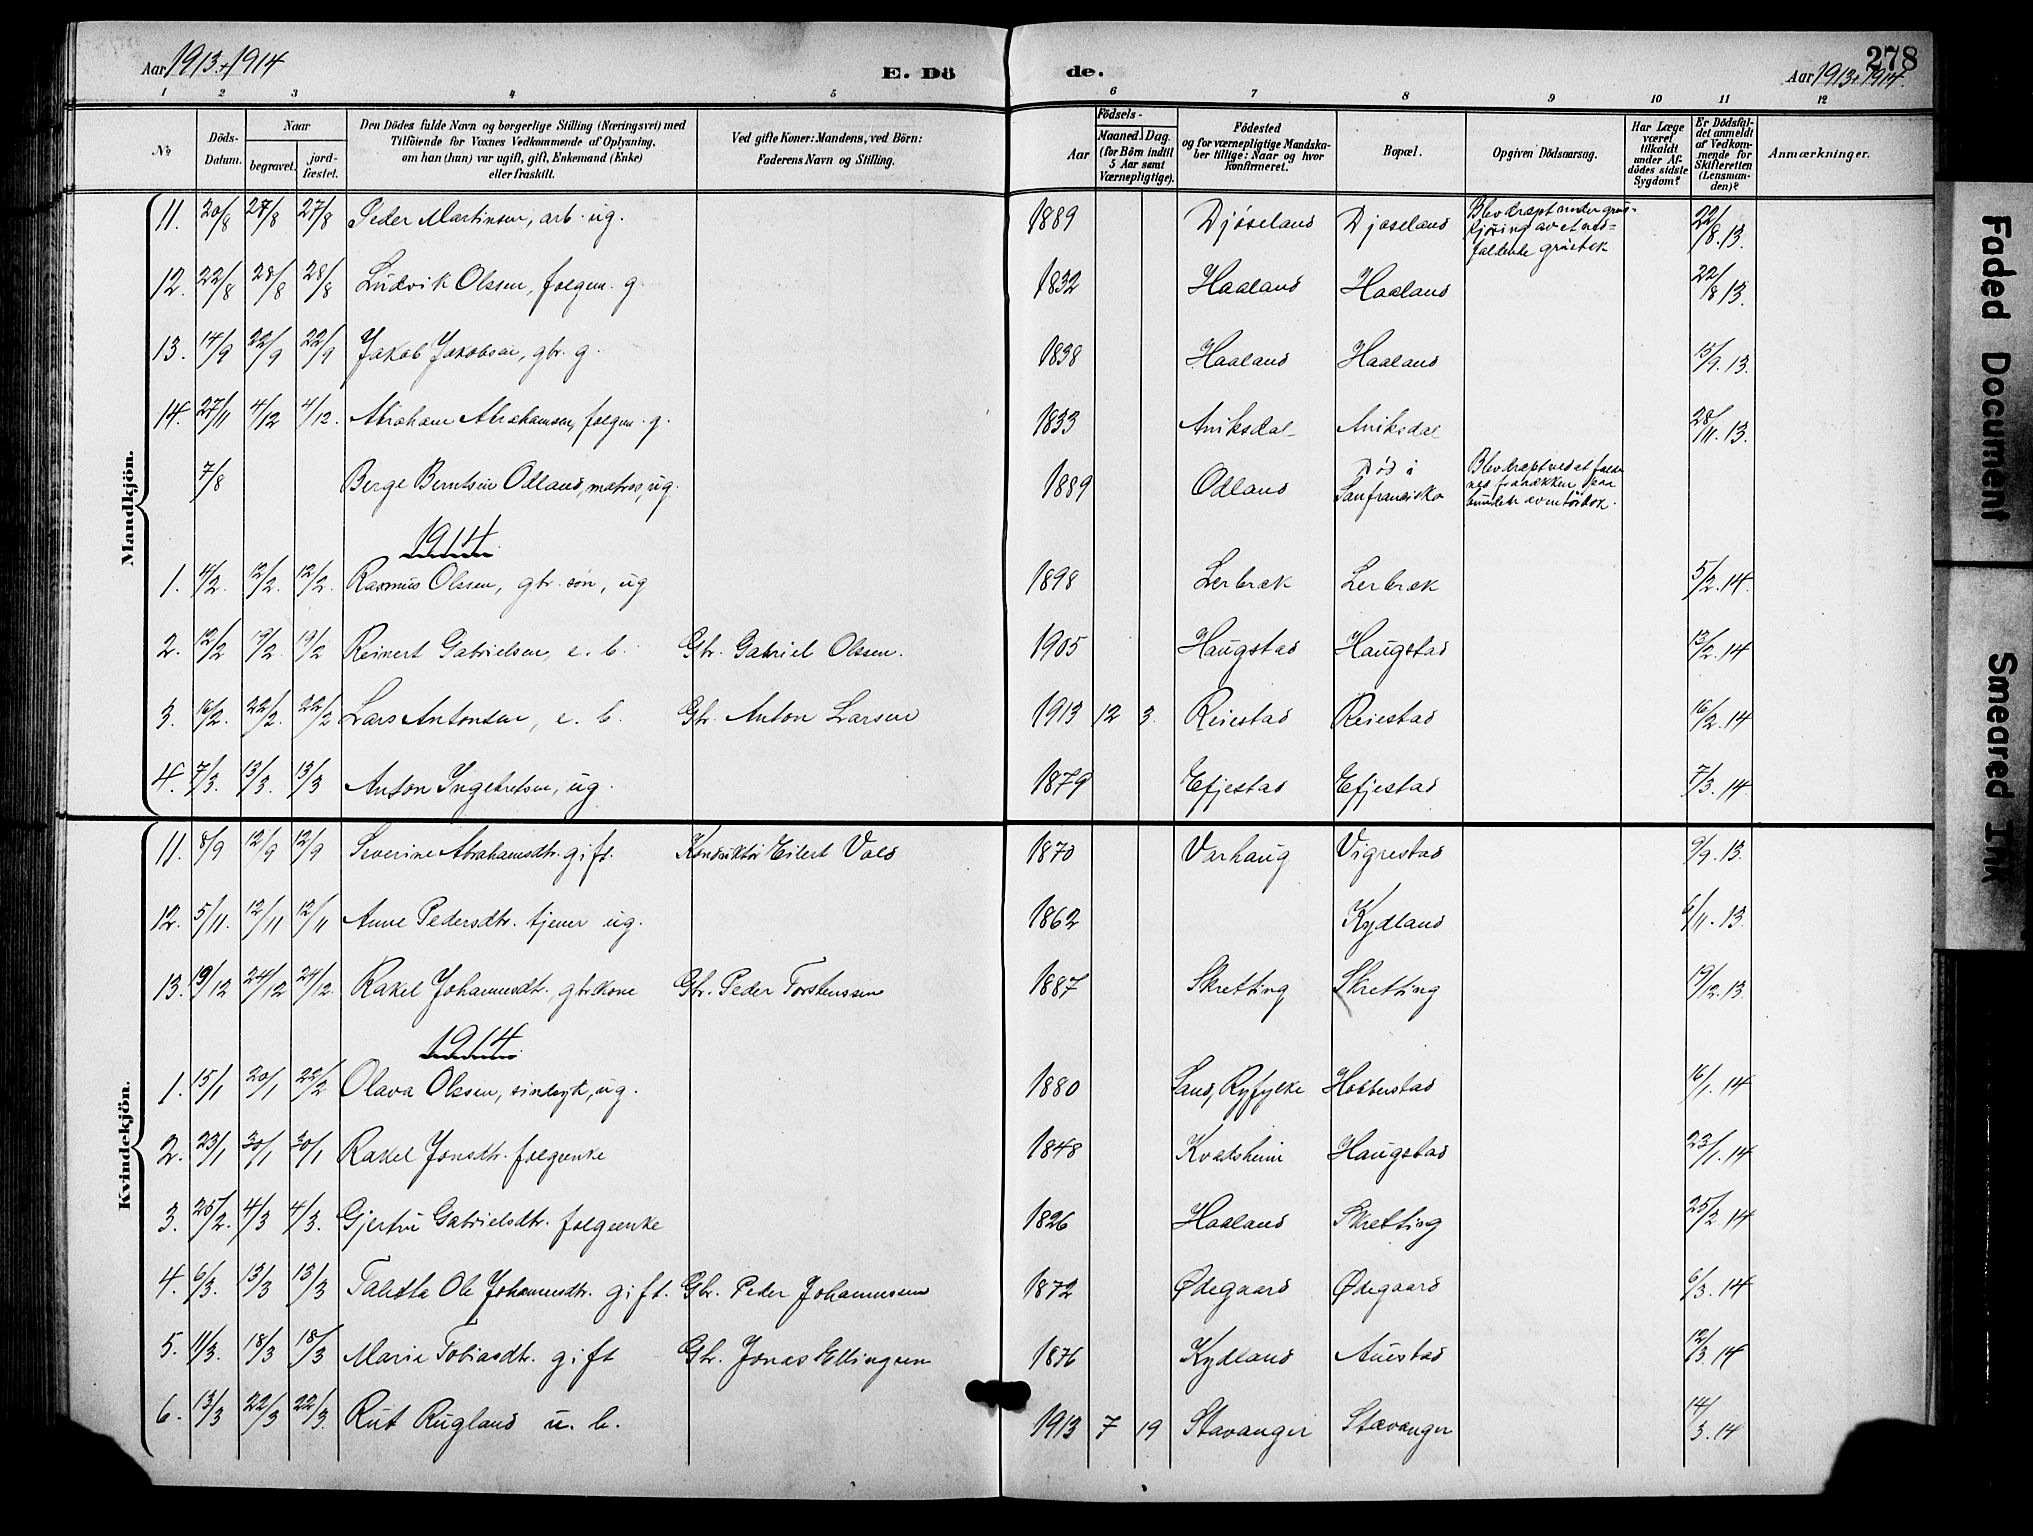 Aar 1913+1914
E. Dö
de.
278
Aar 1913+1914.
1 2 3 4 5 6 7 8 9 10 11 12
No
Döds-
Datum.
Naar
begravet.
jord-
fæstet.
Den Dödes fulde Navn og borgerlige Stilling (Næringsvei) med
Tilföiende for Voxnes Vedkommende af Oplysning,
om han (hun) var ugift, gift, Enkemand (Enke)
eller fraskilt.
Ved gifte Koner: Mandens, ved Börn:
Faderens Navn og Stilling.
Födsels-
Aar
Maaned. Dag.
(for Börn indtil
5 Aar samt
Værnepligtige).
Födested
og for værnepligtige Mandska-
ber tillige: Naar og hvor
konfirmeret.
Bopæl.
Opgiven Dödsaarsag.
Har Læge
været
tilkaldt
under Af-
dödes sidste
Sygdom?
Er Dödsfal-
det anmeldt
af Vedkom-
mende for
Skifteretten
(Lensman-
den)?
Anmærkninger.
Mandkjön.
11. 20/8 27/8 27/8 Peder Martinsen, arb. ug. 1889 Djøseland Djøseland Blev dræpt under grus-
kjøring av et ned-
faldende grústak 22/8.13.
12. 22/8 28/8 28/8 Lúdvik Olssen, folgem. g. 1832 Haaland Haaland 22/8 13.
13. 14/9 22/9 22/9 Jakob Jakobsen, gbr. g. 1838 Haaland Haaland 15/9.13.
14. 27/11 4/12 4/12. Abraham Abrahamsen, folgem. g. 1833 Aniksdal Aniksdal 28/11.13.
7/8 Berge Berntsen Odland, matros, ug. 1889 Odland Død i
Sanfrancisko Blev dræpt ved at falde
1914
1. 4/2. 12/2. 12/2. Rasmus Olssen, gbr. søn, ug 1898 Lerbræk Lerbræk 5/2.14.
2. 12/2 19/2. 19/2 Reinert Gabrielsen, e. b. Gbr. Gabriel Olssen. 1905 Haugstad Haugstad 13/2.14
3. 16/2. 22/2. 22/2 Lars Antonsen, e. b. Gbr. Anton Larsen 1913 12 3. Reiestad Reiestad 16/2.14
4. 7/3. 13/3. 13/3 Anton Ingebretsen, ug. 1879 Efjestad Efjestad 7/3.14.
Kvindekjön.
11. 8/9 12/9 12/9 Severine Abrahamsdtr. gift. Konduktør Eilert Vold 1870 Varhaug Vigrestad 9/9.13.
12. 5/11. 12/11 12/11 Anne Pedersdtr. tjener ug. 1862 Kydland 6/11.13.
13. 19/12 24/12 24/12. Rakel Johannesdtr. gbrskone Gbr. Peder Torstenssen 1887 Skretting Skretting 19/12.13.
1914
1. 15/1 20/1 22/2 Olava Olssen, sindsyk, ug. 1880 Sand, Ryfylke Hobberstad 16/1.14
2. 23/1 30/1 30/1 Rakel Jonsdtr. folgeenke 1848 Kvadsheim Haugstad 23/1.14
3. 25/2. 4/3 4/3. Gjertrú Gabrielsdtr. folgeenke 1826 Haaland Skretting 25/2.14
4. 6/3. 13/3 13/3 Johannesdtr. gift. Gbr. Peder Johannessen 1872 Ødegaard Ødegaard 6/3.14
5. 11/3. 18/3 18/3 Marie Tobiasdtr. gift Gbr. Jonas Ellingsen 1876 Kydland Auestad 12/3.14
6. 13/3 22/3 22/3. Rut Rugland u. b. 1913 7 19 Stavanger Stavanger 14/3.14
Faded Document
Smeared Ink